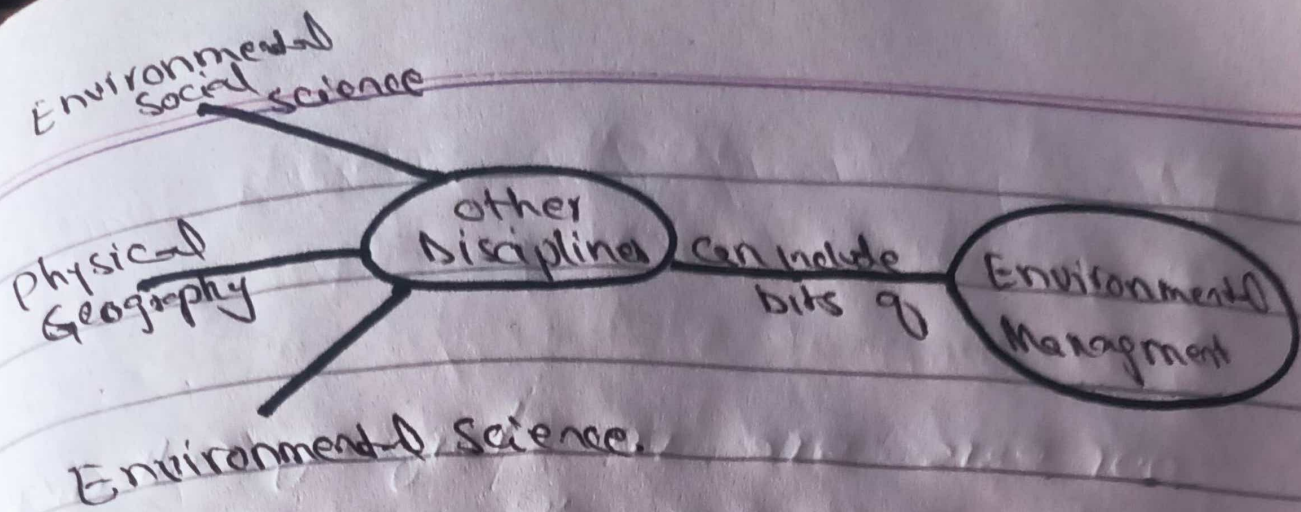 Environmental
social science
Physical
Geography
Environmental science.
other
Disciplines
can include
bits of
Environmental
Managment